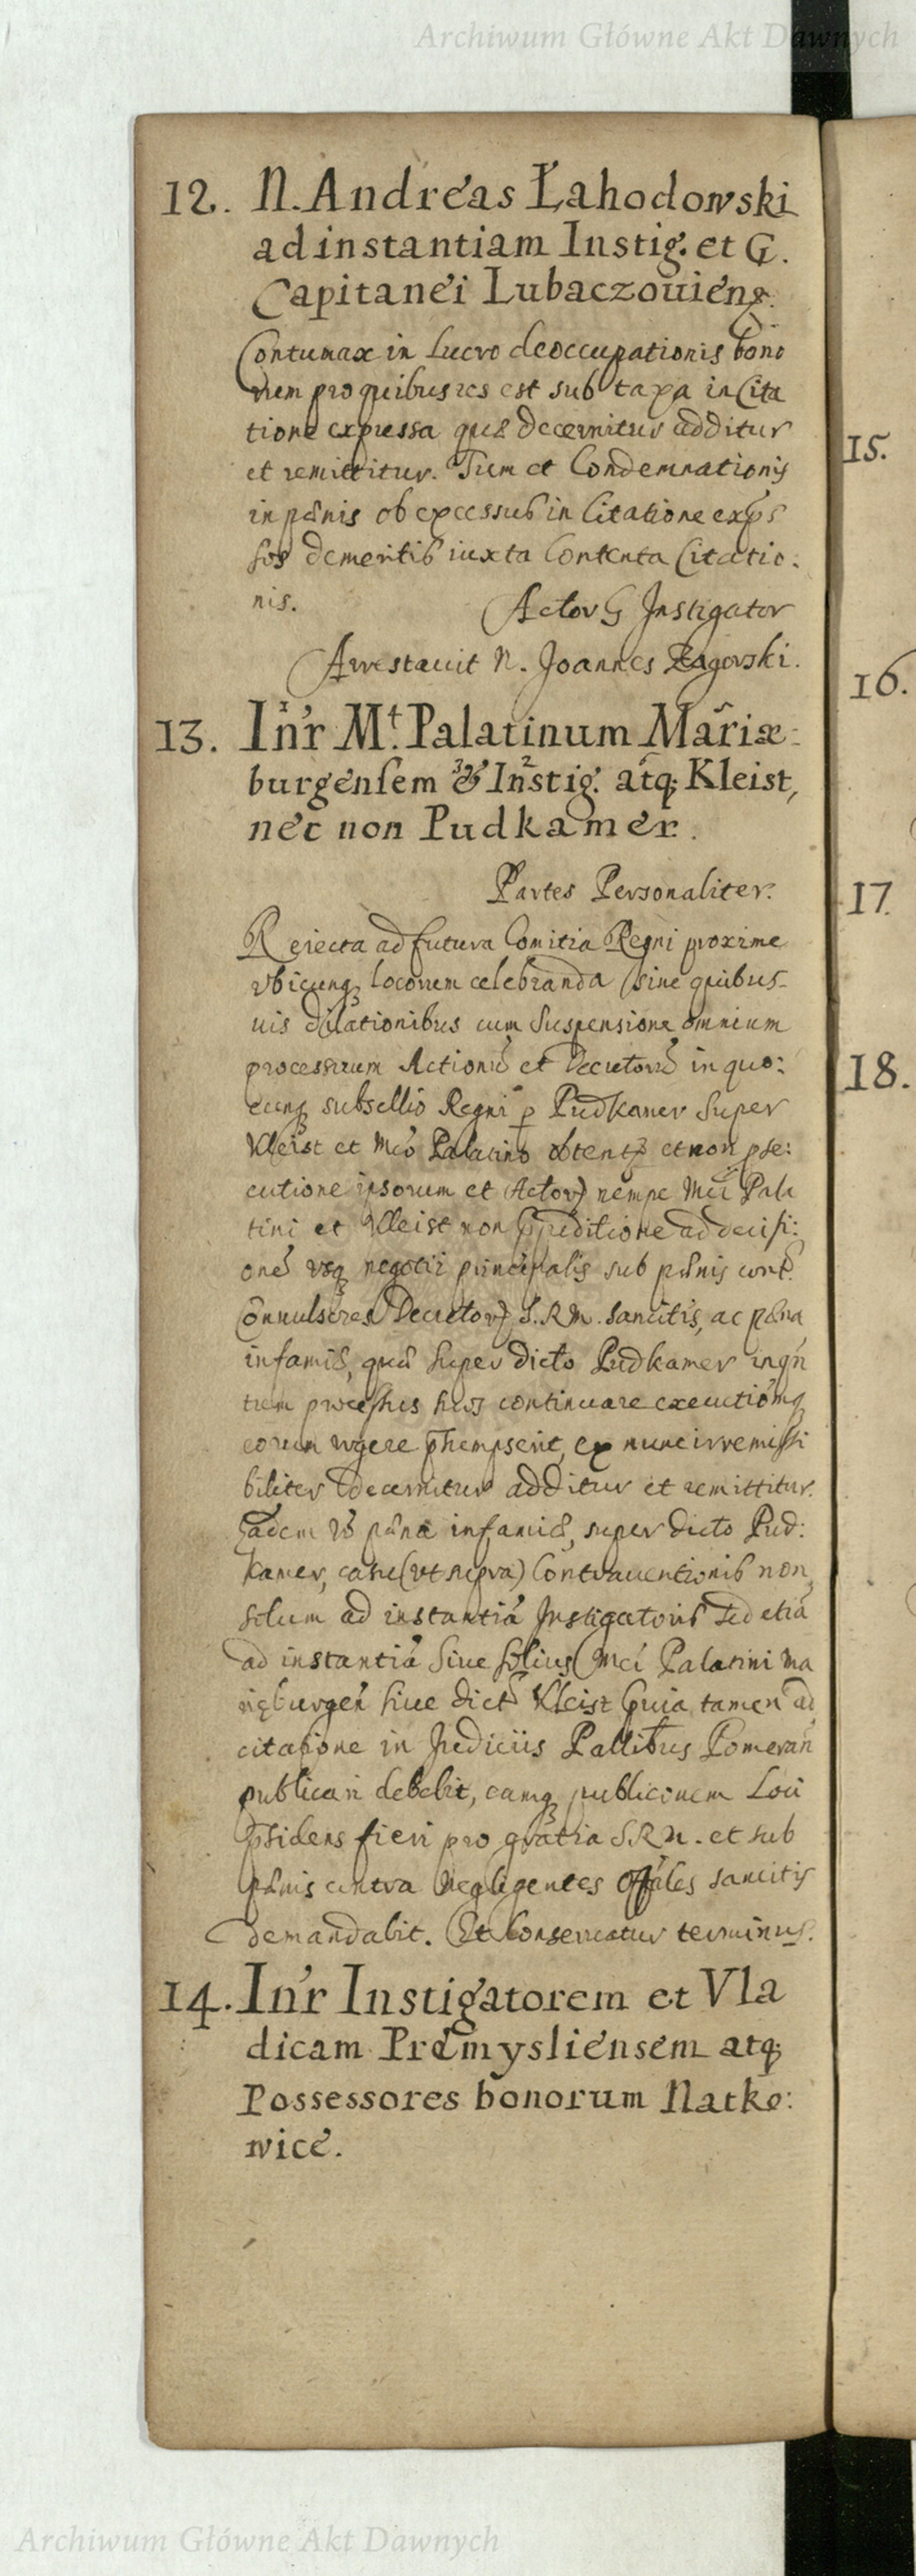 Archiwum Główne Akt Dawnych
12. N. Andreas Łahodowski
ad instantiam Instig. et G.
Capitanei Lubaczouiens.
Contumax in Lucro deoccupationis bono
rum pro quibus res est sub taxa in Cita
tione expressa quæ decernitur additur
et remittitur. Tum et Condemnationis
in pænis ob excessus in Citatione expres
sos demeritis iuxta Contenta Citatio:
nis. Actor G Instigator
Arrestauit N. Joannes Zagorski.
13. Int'r Mt. Palatinum Mariæ:
burgensem & Instig. atq; Kleist,
nec non Pudkamer.
Partes Personaliter.
Reiecta ad futura Comitia Regni proxime
vbicunq; locorum celebranda sine quibus-
uis dilationibus cum Suspensione omnium
processuum Actionũ et Decretorũ in quo:
cunq; subsellio Regni p Pudkamer Super
Kleist et Mco Palatino obtent et non pse:
cutione ipsorum et Actor nempe Mci Pala
tini et Kleist non expeditione ad decisi:
onẽ vsq; negotii principalis sub pænis cont.
Conuulsores Decretor S.R.M. sancitis, ac pæna
infamiæ, quã super dicto Pudkamer inqn
tum processus suos continuare executionẽq;
eorum vrgere præsumpserit, ex nunc irremissi
biliter decernitur additur et remittitur.
Eadem vº pæna infamiæ, super dicto Pud:
kamer, casu (vt supra) Contrauentionis non
solum ad instantiã Instigatoris sed etiã
ad instantiã siue solius Mci Palatini Ma
riæburgeñ siue dicti Kleist Quia tamen ad
citatione in Judiciis Pallibus Pomerañ
publicari debebit, eamq; publiconem Loci
Præsidens fieri pro gratia S.R.M. et sub
pænis contra Negligentes Offales sancitis
demandabit. Et Conseruatur terminus.
14. Int'r Instigatorem et Vla
dicam Præmysliensem atq;
Possessores bonorum Natko:
wice.
15.
16.
17
18.
Archiwum Główne Akt Dawnych